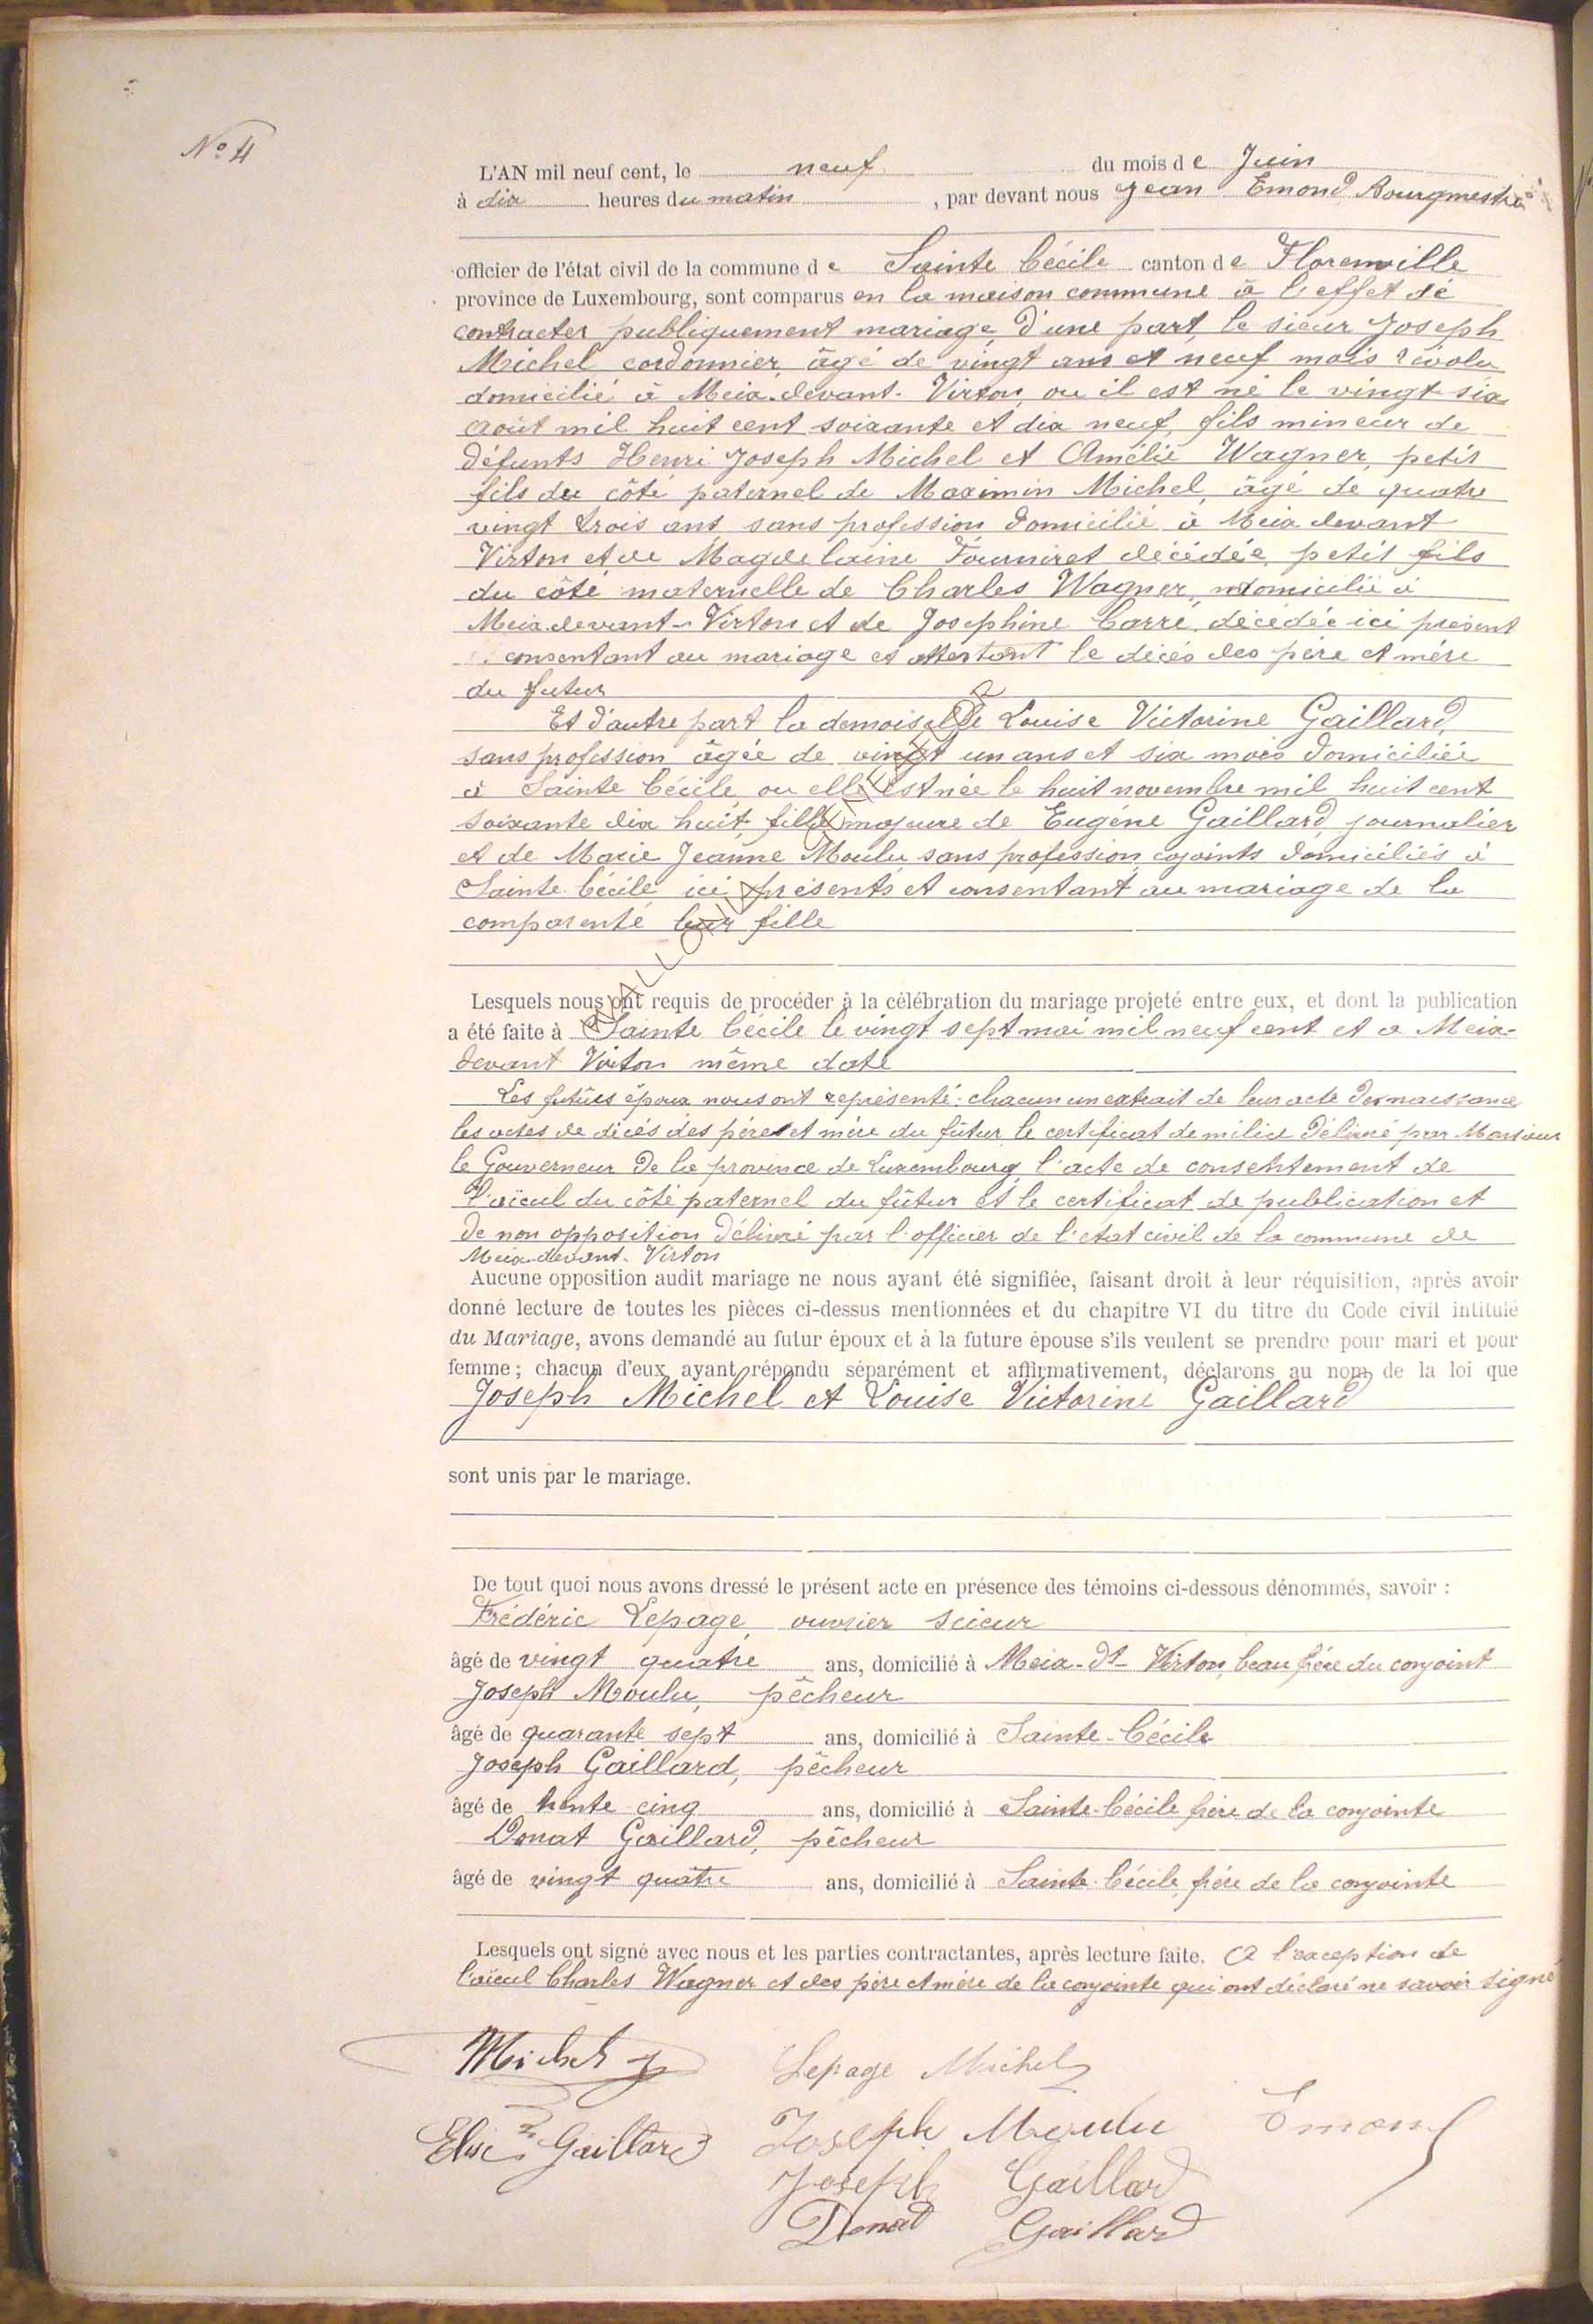 No 4
L'AN mil neuf cent, le neuf du mois de Juin
à dix heures du matin, par devant nous Jean Emond Bourgmestre
officier de l'état civil de la commune de Sainte Cécile canton de Florenville
province de Luxembourg, sont comparus en la maison commune à l'effet de
contracter publiquement mariage, d'une part, le sieur Joseph
Michel cordonnier, âgé de vingt ans et neuf mois révolu
domicilié à Meix-devant-Virton, ou il est né le vingt-six
août mil huit cent soixante et dix neuf, fils mineur de
défunts Henri Joseph Michel et Amélie Wagner, petit
fils du côté paternel de Maximin Michel, âgé de quatre
vingt trois ans, sans profession, domicilié à Meix devant
Virton et de Magdelaine Fourniret décédée, petit fils
du côté maternelle de Charles Wagner, domicilié à
Meix-devant-Virton et de Josephine Carré, décédée ici présent
consentant au mariage et attestant le décès des père et mère
du futur
Et d'autre part la demoiselle Louise Victorine Gaillard,
sans profession âgée de vingt un ans et six mois domiciliée
à Sainte Cécile, ou elle est née le huit novembre mil huit cent
soixante dix huit, fille majeure de Eugène Gaillard, journalier
et de Marie Jeanne Moulu, sans profession, cojoints domiciliés à
Sainte Cécile ici présents et consentant au mariage de la
comparente leur fille
Lesquels nous ont requis de procéder à la célébration du mariage projeté entre eux, et dont la publication
a été faite à Sainte Cécile le vingt sept mai mil neuf cent et a Meix-
devant Virton même date
Les futûrs époux nous ont représenté: chacun un extrait de leur acte de naissance
les actes de décés des père et mère du fûtur, le certificat de milice délivré par Monsieur
le Gouverneur de la province de Luxembourg, l'acte de consentement de
l'aïeul du côté paternel du fûtur et le certificat de publication et
de non opposition délivré par l'officier de l'état civil de la commune de
Meix-devant-Virton
Aucune opposition audit mariage ne nous ayant été signifiée, faisant droit à leur réquisition, après avoir
donné lecture de toutes les pièces ci-dessus mentionnées et du chapitre VI du titre du Code civil intitulé
du Mariage, avons demandé au futur époux et à la future épouse s'ils veulent se prendre pour mari et pour
femme; chacun d'eux ayant répondu séparément et affirmativement, déclarons au nom de la loi que
Joseph Michel et Louise Victorine Gaillard
sont unis par le mariage.
De tout quoi nous avons dressé le présent acte en présence des témoins ci-dessous dénommés, savoir :
Frédéric Lepage, ouvrier scieur
âgé de vingt quatre ans, domicilié à Meix-dt-Virton, beau frère du conjoint
Joseph Moulu, pêcheur
âgé de quarante sept ans, domicilié à Sainte-Cécile
Joseph Gaillard, pêcheur
âgé de trente cinq ans, domicilié à Sainte-Cécile frère de la conjointe
Donat Gaillard, pêcheur
âgé de vingt quatre ans, domicilié à Sainte-Cécile, frère de la conjointe
Lesquels ont signé avec nous et les parties contractantes, après lecture faite. A l'exception de
l'aïeul Charles Wagner et des père et mère de la conjointe qui ont déclaré ne savoir signé
Michel J
Lepage Michel
Gaillard
Joseph Moulu
Emond
Joseph Gaillard
Donat Gaillard